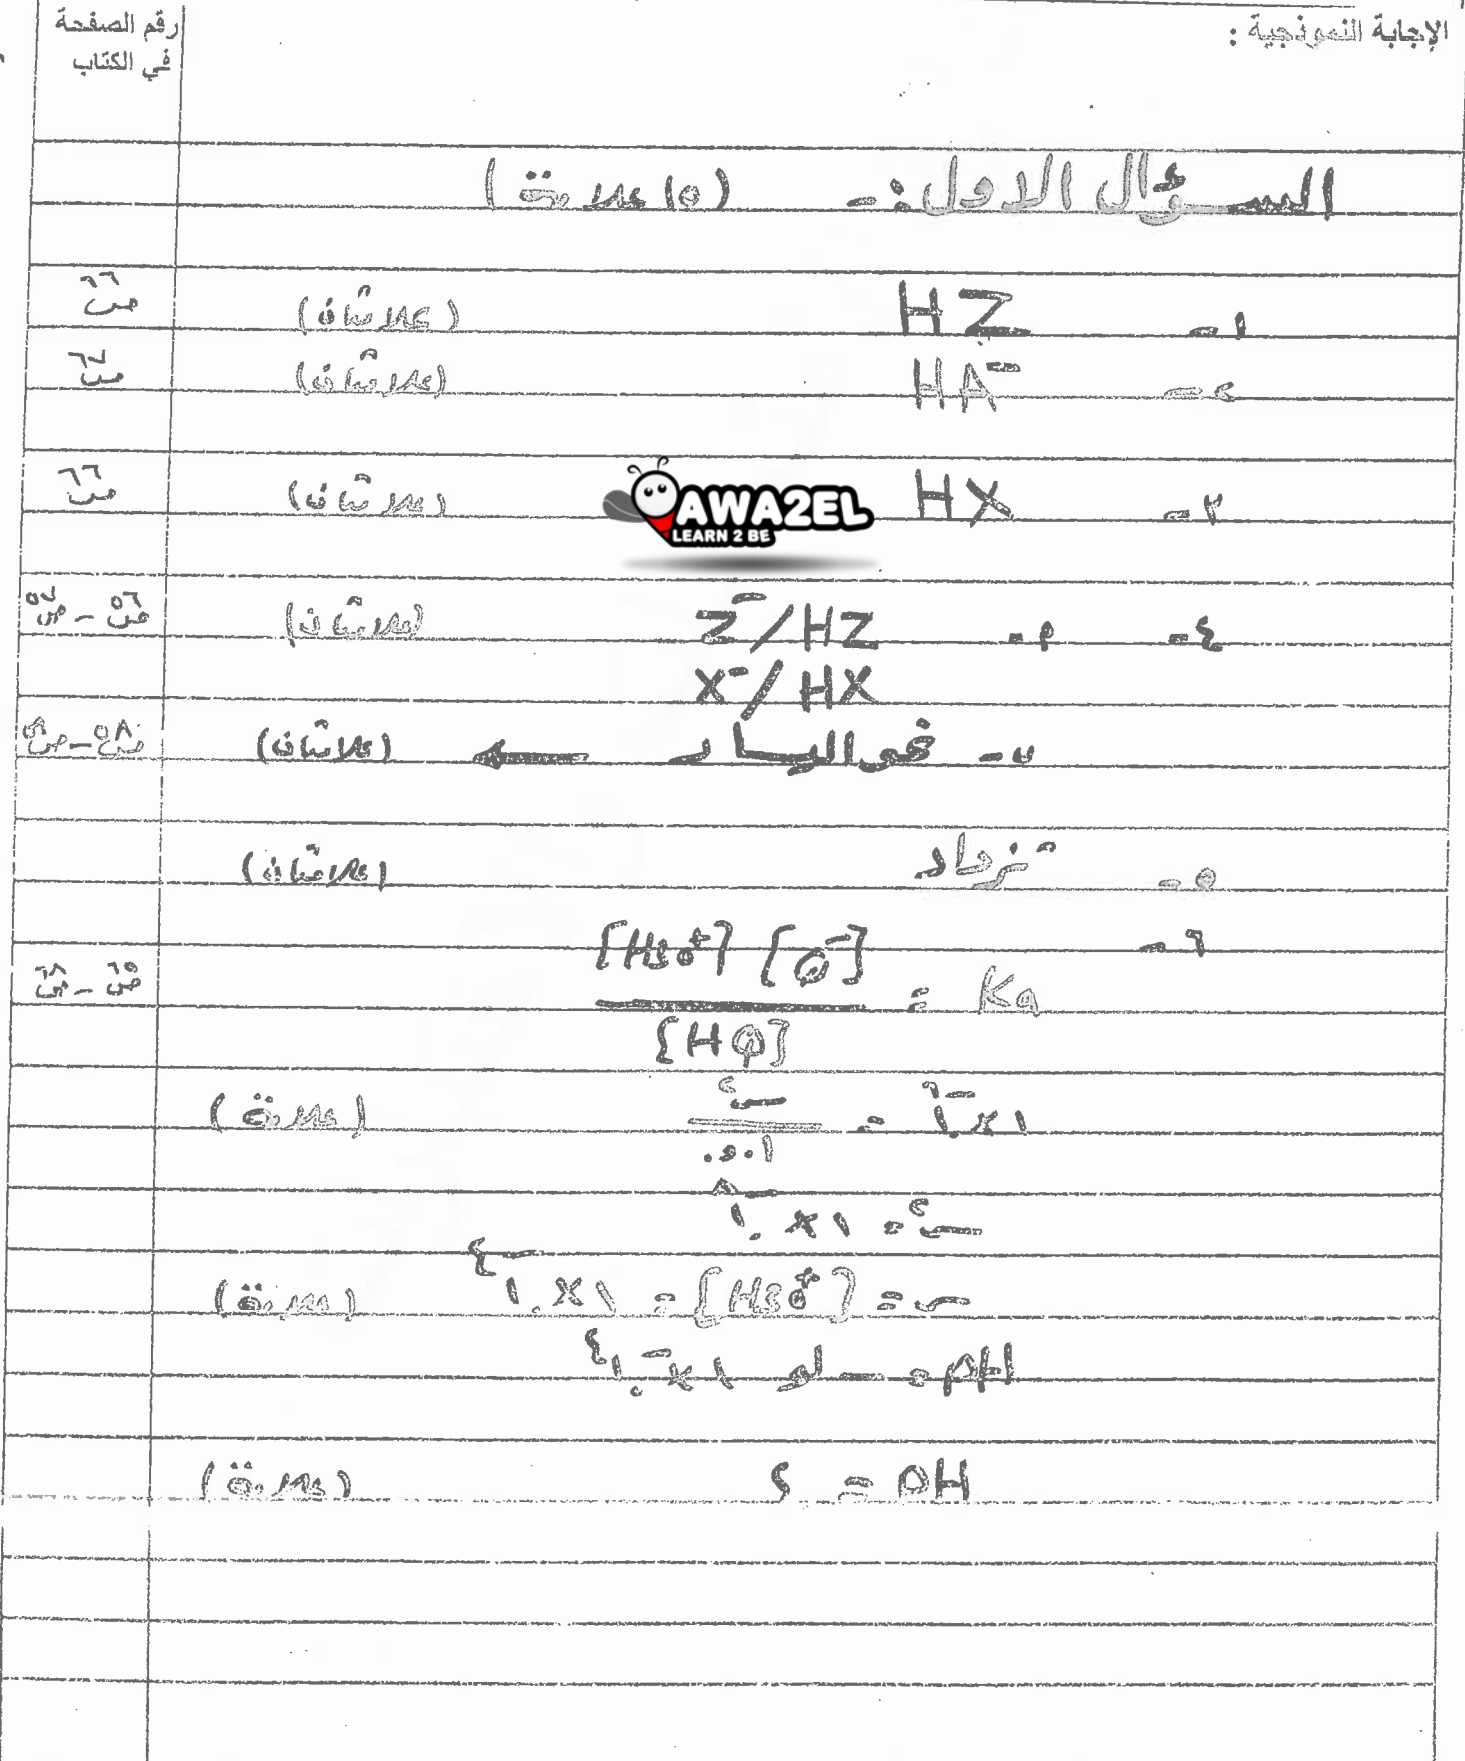 الإجابة النموذجية :
رقم الصفحة
في الكتاب
السؤال الاول :- (١٥ علامة)
١- HZ (علامتان) ص٦٦
٢- HA⁻ (علامتان) ص٦٧
٣- HX (علامتان) ص٦٦
AWA2EL
LEARN 2 BE
٤- أ- Z⁻/HZ (علامتان) ص٥٦ - ص٥٧
X⁻/HX
ب- نحو اليسار ← (علامتان) ص٥٨ - ص٥٩
٥- تزداد (علامتان)
٦- Ka = [H3O⁺] [Q⁻] / [HQ] ص٦٥ - ص٦٨
١×١٠⁻٦ = س٢ / ٠.٠١ (علامة)
س٢ = ١×١٠⁻٨
س = [H3O⁺] = ١×١٠⁻٤ (علامة)
pH = - لو ١×١٠⁻٤
pH = ٤ (علامة)